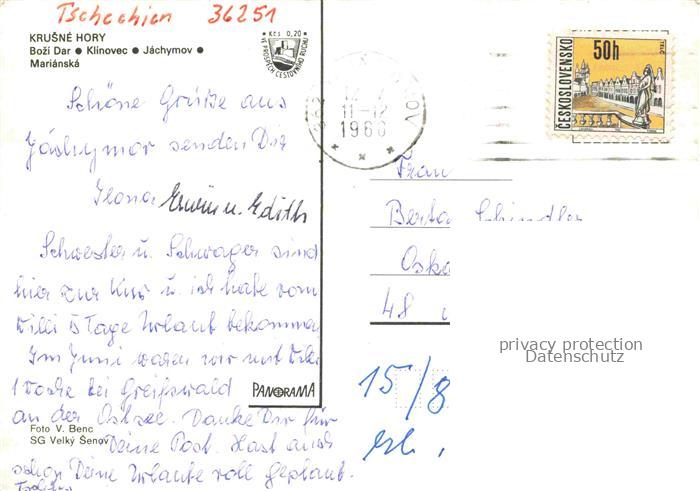 Tschechien 36251
KRUŠNÉ HORY
Boží Dar ● Klínovec ● Jáchymov ●
Mariánská
Kčs 0,20
VE PROSPĚCH CESTOVNÍHO RUCHU
11-12
ČESKOSLOVENSKO
50h
TELČ
Schöne Grüße aus
Jáchymov senden Dir
Ilona Erwin u. Edith
Schwester u. Schwager sind
hier zur Kur u. ich habe vom
Willi 5 Tage Urlaub bekommen
Im Juni waren wir mit Willi
1 Woche bei Greifswald
an der Ostsee. Danke Dir für
Deine Post. Hast auch
schon Deine Urlaube voll geplant.
PANORAMA
Foto V. Benc
SG Velký Šenov
Frau
Berta Schindler
48
privacy protection
Datenschutz
15/8